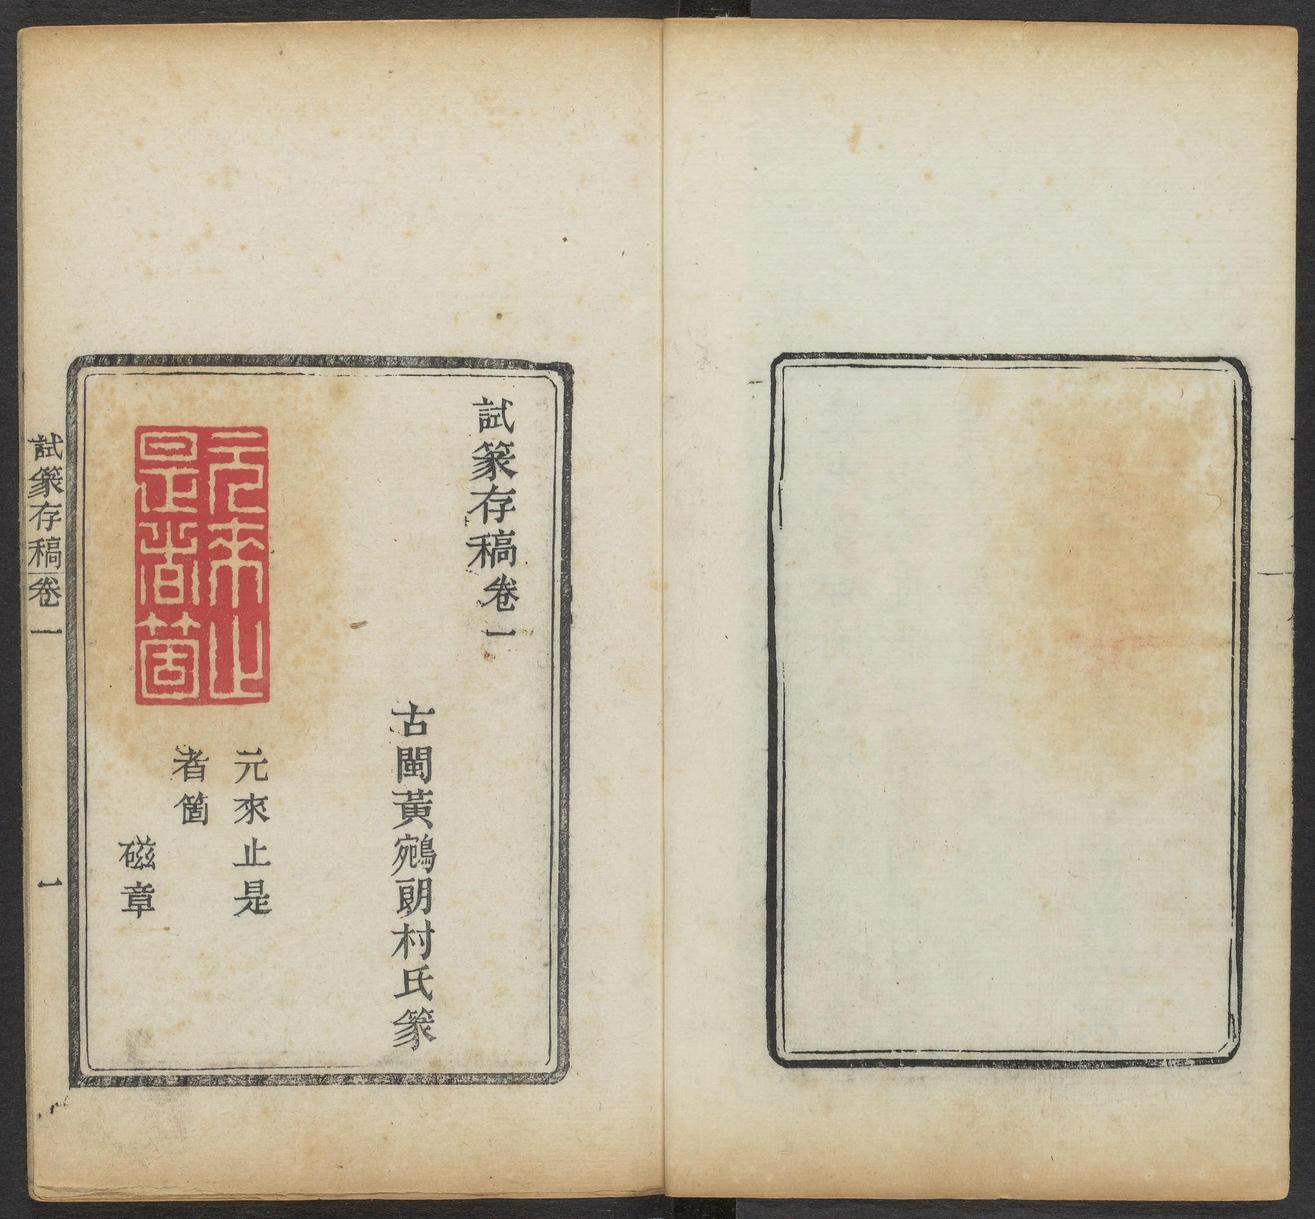 試篆存稿卷一
古閩黃鵷朗村氏篆
元來止是者箇
元來止是
者箇
磁章
試篆存稿卷一
一